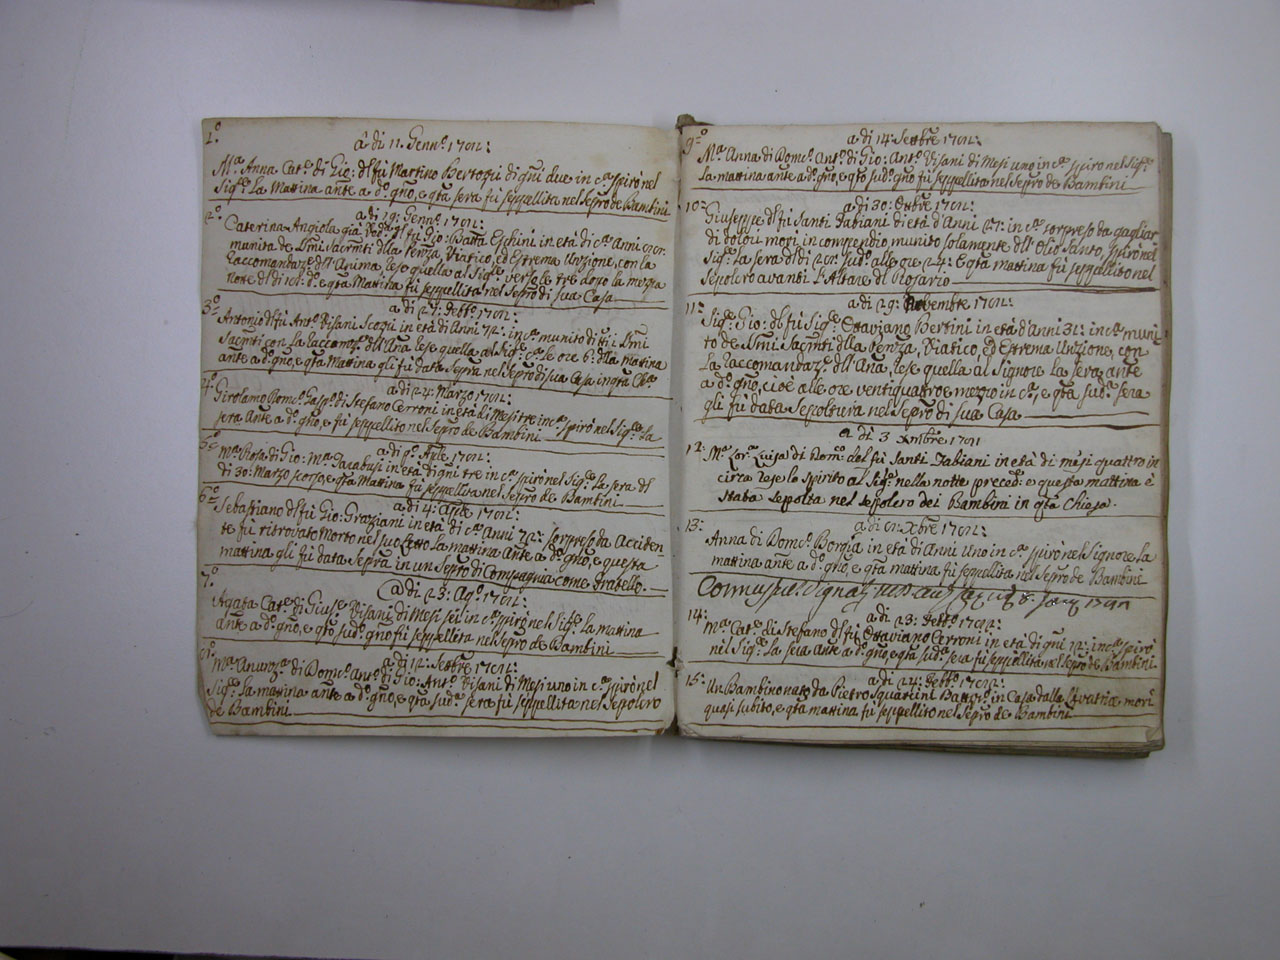 1.º
â di 11. Genn.º 1791:
M.ª Anna Cat.ª di Gio: del fù Martino Bertoqui di gñi due in c.ª spirò nel
Sig.ʳᵉ la mattina ante a d.º gño, e qta sera fù seppellita nel Sepro de Bambini
2.º
a di 19: Genn.º 1791:
Caterina Angiola già del fù Gio: Batta Eschini in età di c.ª Anni
munita de Smi Sacrmti dlla Penza, Viatico, ed Estrema Unzione, con la
Raccomandaz.e dll'Anima rese quella al Sig.ʳᵉ verso le tre dopo la mezza
notte dl di d.º e qta Mattina fù seppellita nel Sepro di sua Casa
3.º
a di 27: Febb.º 1791:
Antonio dl fù Ant.º Visani Scozii in età di Anni 72: in c.ª munito di tti i Smi
Sacrmti con la Raccom.e dll'Ana rese quella al Sig.ʳᵉ c.ª le ore 6: dlla mattina
ante a d.º gño, e qta Mattina gli fù data Sepra nel Sepro di sua Casa in qta Ch.ª
4.º
a di 24: Marzo 1791:
Girolamo Dom.co Gasp.e di Stefano Cerroni in età di Mesi tre in c.ª spirò nel Sig.ʳᵉ la
sera Ante a d.º gño, e fù seppellito nel Sepro de Bambini
5.º
a di p.º Aple 1791:
M.ª Rosa di Gio: M.ª Jacabusi in età di gñi tre in c.ª spirò nel Sig.ʳᵉ la sera dl
di 30: Marzo scorso, e qta Mattina fù seppellita nel Sepro de Bambini
6.º
a di 4: Aple 1791:
Sebastiano dl fù Gio: Graziani in età di c.ª Anni 72: sorpreso da Acciden
te fù ritrovato Morto nel suo Letto la mattina Ante a d.º gño, e questa
mattina gli fù data Sepra in un Sepro di Compagnia come fratello.
7.º
a di 23: Ag.º 1791:
Agata Cat.ª di Gius.e Visani di Mesi sei in c.ª spirò nel Sig.ʳᵉ la mattina
ante a d.º gño, e qto sud.º gño fù seppellita nel Sepro de Bambini
8.º
a di 12: Settbre 1791:
M.ª Anunz.ª di Dom.co Ant.º di Gio: Ant.º Visani di Mesi uno in c.ª spirò nel
Sig.ʳᵉ la mattina ante a d.º gño, e qta sud.ª sera fù seppellita nel Sepolcro
de Bambini
9.º
a di 14: Settbre 1791:
M.ª Anna di Dom.co Ant.º di Gio: Ant.º Visani di Mesi uno in c.ª spirò nel Sig.ʳᵉ
la mattina ante a d.º gño, e qto sud.º gño fù seppellita nel Sepro de Bambini
10:
a di 30: Ottbre 1791:
Giuseppe dl fù Santi Fabiani di età d'Anni 47: in c.ª sorpreso da gagliar
di dolori morì in compendio munito solamante dll'Olio Santo, spirò nel
Sig.ʳᵉ la sera dl di sud.º alle ore 24: e qta mattina fù seppellito nel
Sepolcro avanti l'Altare dl Rosario
11:
a di 29: Novembre 1791:
Sig.ʳᵉ Gio: dl fù Sig.ʳᵉ Ottaviano Bertini in età d'Anni 31: in c.ª muni
to de Smi Sacrmti dlla Penza, Viatico, ed Estrema Unzione, con
la Raccomandaz.e dll'Ana, rese quella al Signore la sera ante
a d.º gño, cioè alle ore ventiquattro e mezzo in c.ª, e qta sud.ª sera
gli fù data Sepoltura nel Sepro di sua Casa
a di 3 Xmbre 1791
12:
M.ª Lor.ª Luiga di Dom.co del fù Santi Fabiani in età di mesi quattro in
circa rese lo spirito al Sig.ʳᵉ nella notte preced.e e questa mattina è
stata sepolta nel sepolcro dei Bambini in qta Chiesa.
13:
a di Xbre 1791:
Anna di Dom.co Borgia in età di Anni Uno in c.ª spirò nel Signore la
mattina ante a d.º gño, e qta mattina fù seppellita nel Sepro de Bambine
14:
a di 23: Febb.º 1792:
M.ª Cat.ª di Stefano dl fù Ottaviano Cerroni in età di gñi 12: in c.ª spirò
nel Sig.ʳᵉ la sera ante a d.º gño, e qta sud.ª sera fù seppellita nel Sepro de Bambini
15:
a di 24: Febb.º 1792:
Un Bambino nato da Pietro Squarcini Batt.º in Casa dalla morì
quasi subito, e qta mattina fù seppellito nel Sepro de Bambini